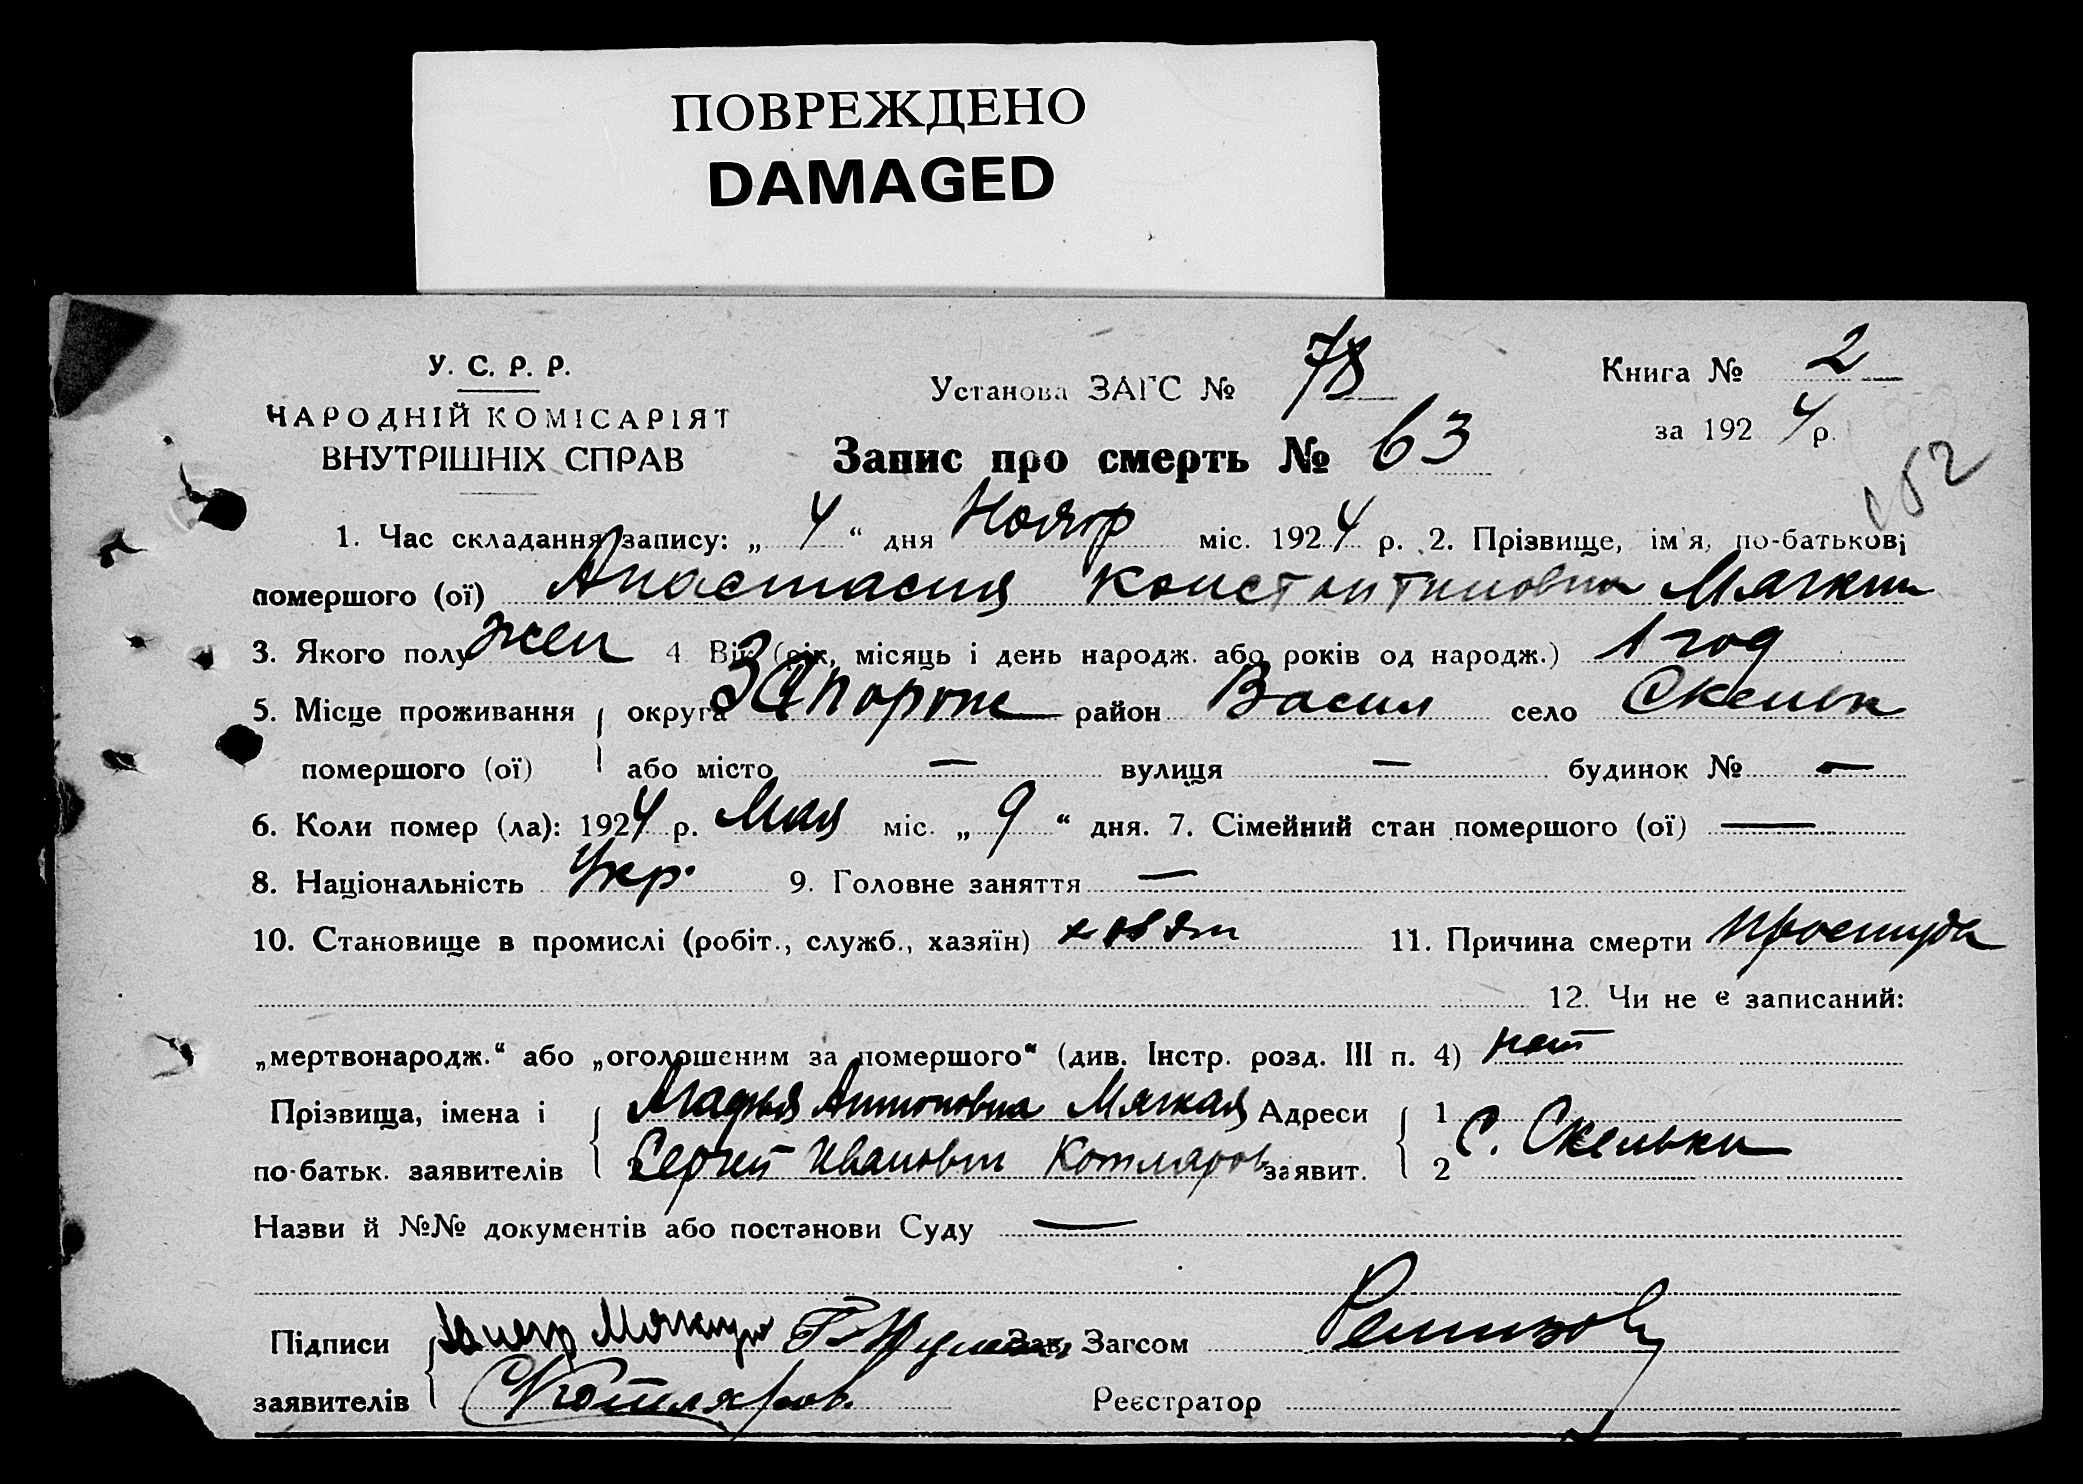 ПОВРЕЖДЕНО
DAMAGED
У. С. Р. Р.
НАРОДНІЙ КОМІСАРІЯТ
ВНУТРІШНІХ СПРАВ
Установа ЗАГС № 78
Книга № 2
за 1924 р.
Запис про смерть № 63
152
1. Час складання запису: „ 4 “ дня Нояbr міс. 1924 р. 2. Прізвище, ім'я, по-батькові
помершого (ої) Анастасия Константиновна Мягкая
3. Якого полу жен 4 Вік (рік, місяць і день народж. або років од народж.) 1 год
5. Місце проживання округа Запорож район Васил село Скельк
помершого (ої) або місто — вулиця — будинок № —
6. Коли помер (ла): 1924 р. Мая міс. „ 9 “ дня. 7. Сімейний стан помершого (ої) —
8. Національність Укр. 9. Головне заняття —
10. Становище в промислі (робіт., служб., хазяїн) 11. Причина смерти простуда
12. Чи не є записаний:
„мертвонародж.“ або „оголошеним за помершого“ (див. Інстр. розд. III п. 4) нет
Прізвища, імена і Агафья Антоновна Мягкая Адреси 1
по-батьк. заявителів 2 Сергей Иванович Котляров заявит. 2 с. Скельки
Назви й №№ документів або постанови Суду —
Підписи Зав. Загсом
заявителів Котляров. Реєстратор